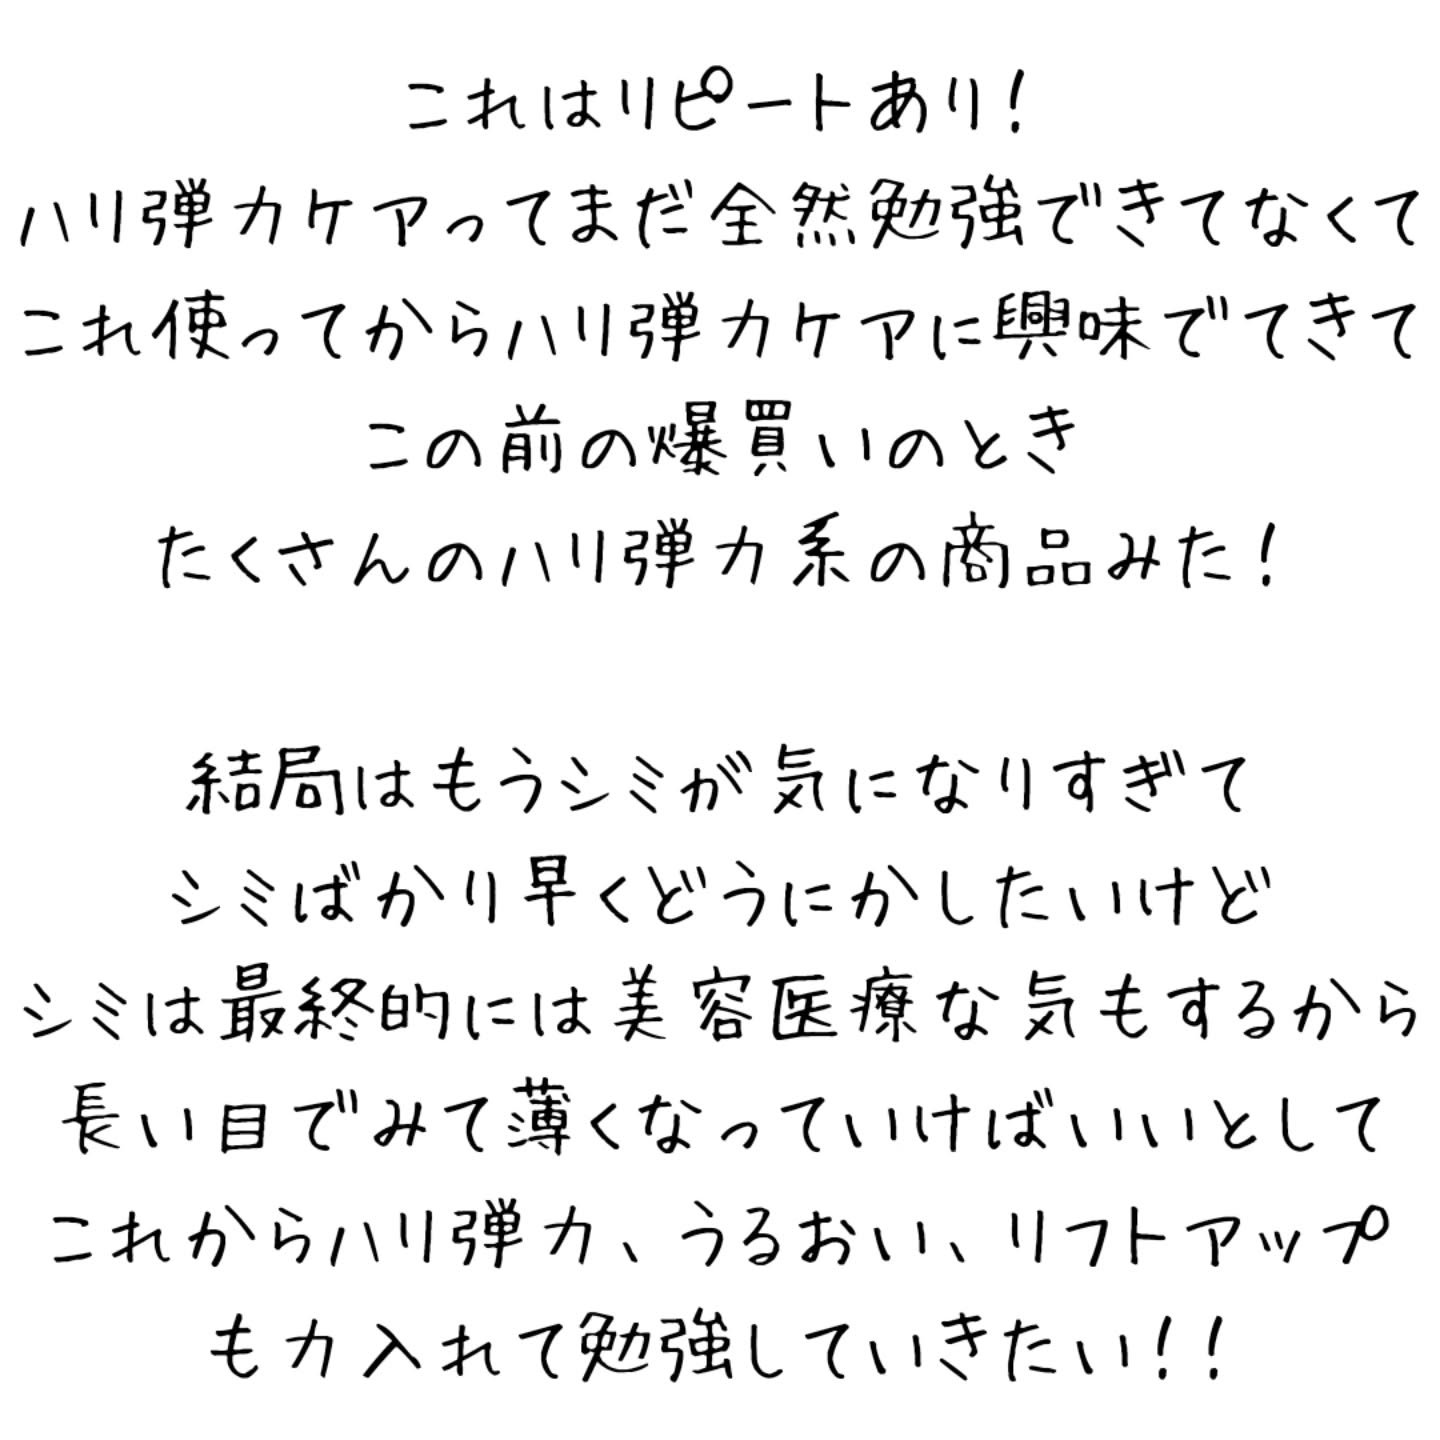 これはリピートあり!
ハリ弾力ケアってまだ全然勉強できてなくて
これ使ってからハリ弾力ケアに興味でてきて
この前の爆買いのとき
たくさんのハリ弾力系の商品みた!
結局はもうシミが気になりすぎて
シミばかり早くどうにかしたいけど
シミは最終的には美容医療な気もするから
長い目でみて薄くなっていけばいいとして
これからハリ弾力、うるおい、リフトアップ
も力入れて勉強していきたい!!